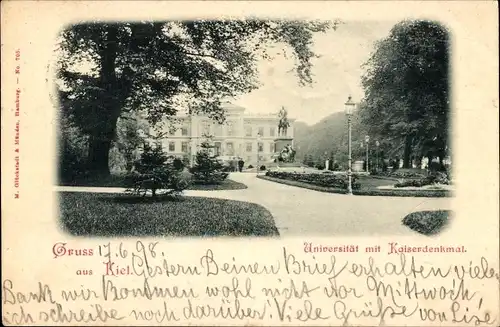 M. Glückstadt & Münden, Hamburg. — No. 765.
Gruss aus Kiel.
Universität mit Kaiserdenkmal.
17.6.98.
Gestern Deinen Brief erhalten vielen
Dank, wir kommen wohl nicht vor Mittwoch,
ich schreibe noch darüber. Viele Grüße von Lise